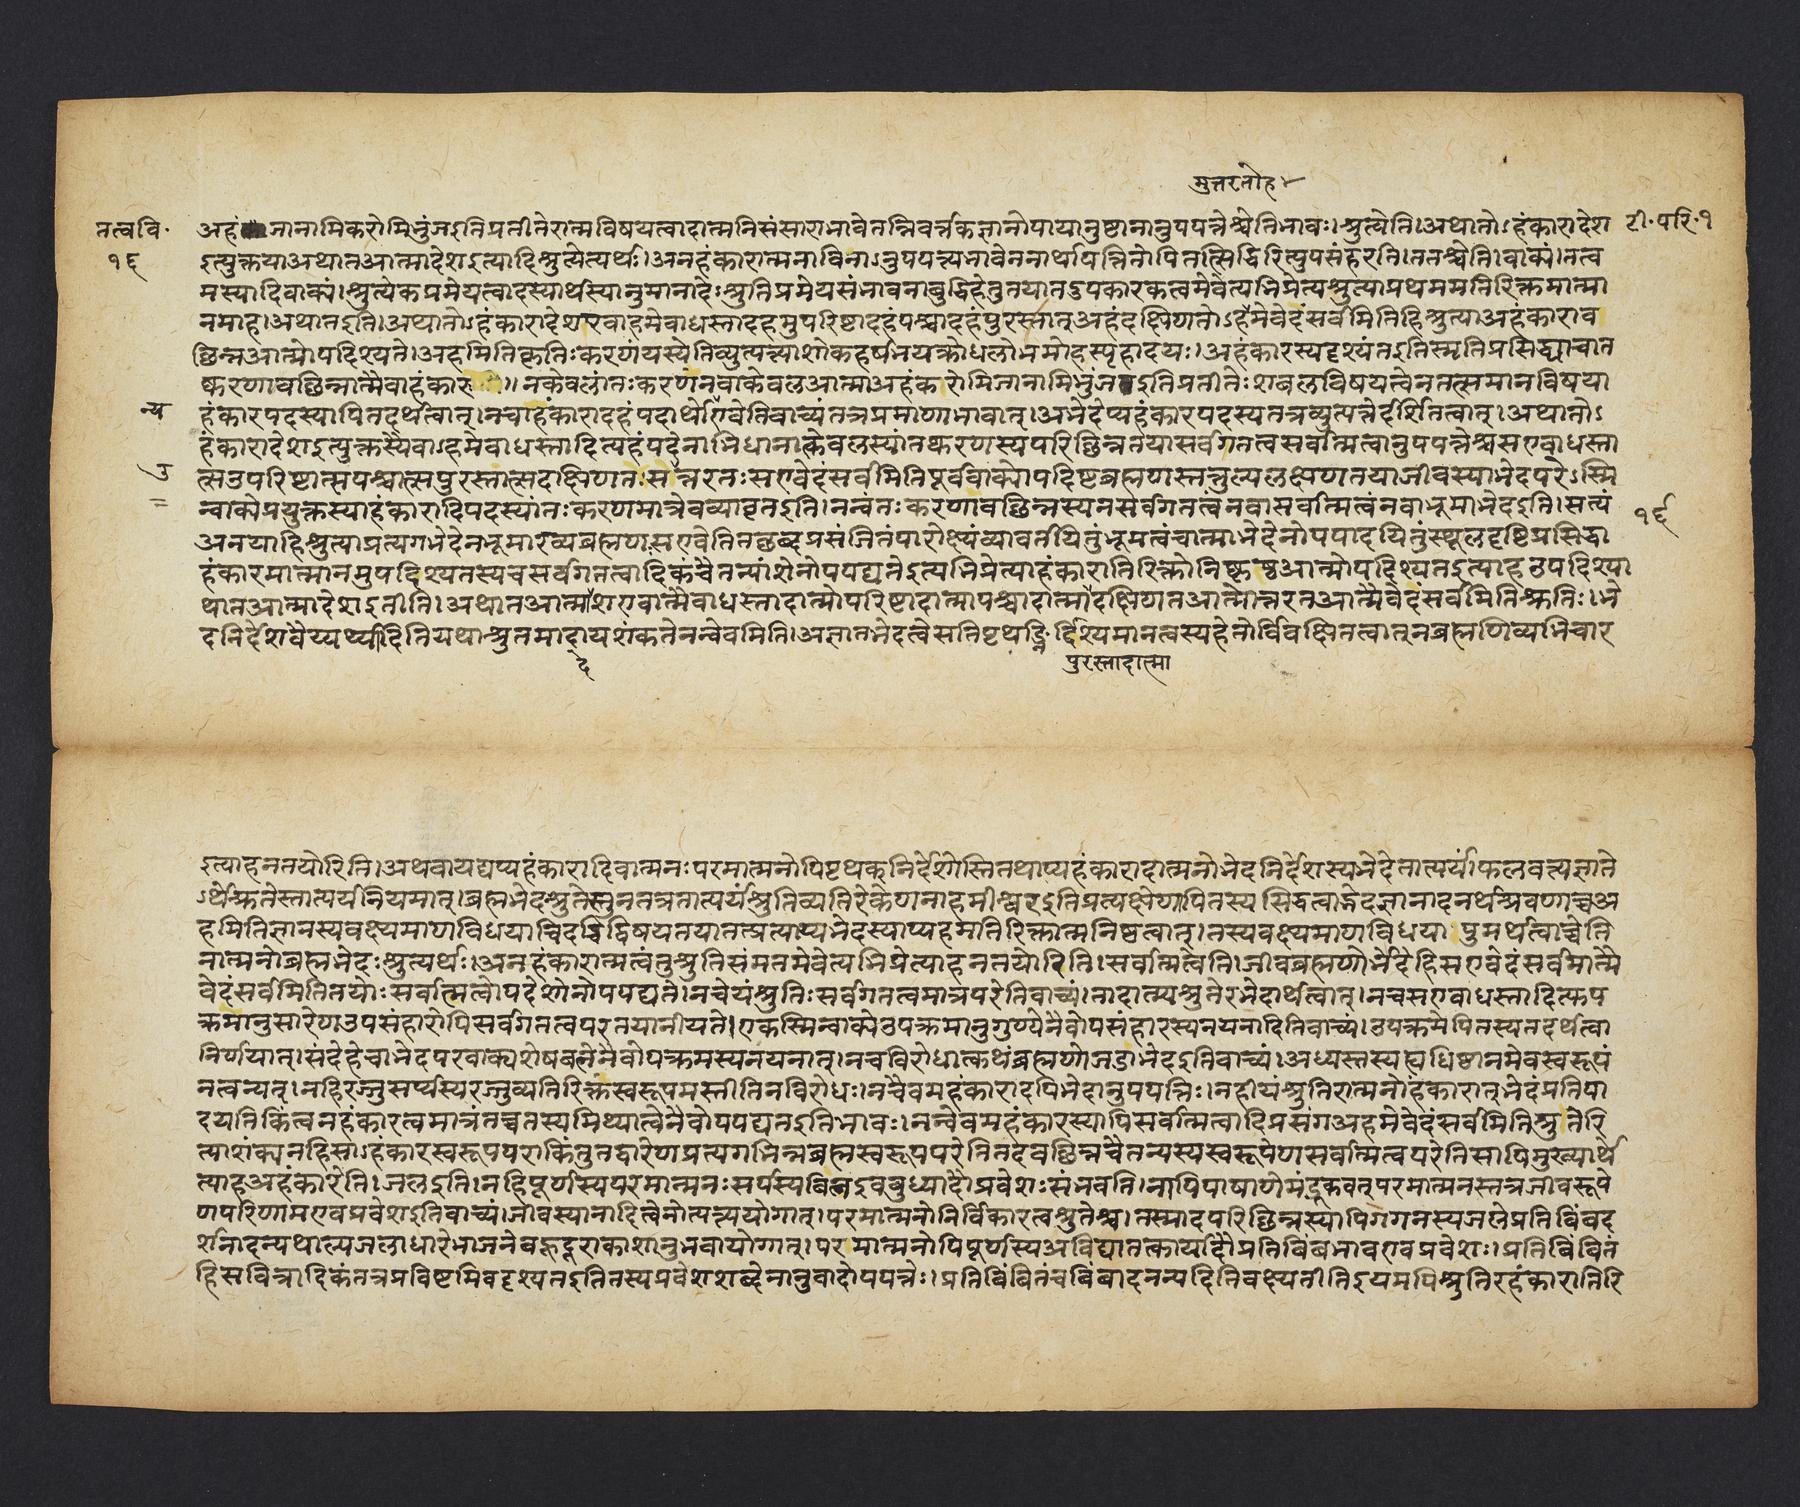 मुत्तरतोह
तत्ववि॰
१६
टी॰परि॰१
अहं जानामिकरोमिभुंजइतिप्रतीतेरात्मविषयत्वादात्मनिसंसाराभावेतन्निवर्त्तकज्ञानोपायानुष्टानानुपपत्तेश्चेतिभावः।श्रुत्येति।अथातोऽहंकारादेश
इत्युक्तयाअथातआत्मादेशइत्यादिश्रुत्येत्यर्थः।अनहंकारात्मनाविनाऽनुपपत्त्यभावेननार्थापत्तितोपितत्सिद्धिरित्युपसंहरति।ततश्चेति।वाक्यं।तत्व
मस्यादिवाक्यं।श्रुत्येकप्रमेयत्वादस्यार्थस्यानुमानादेःश्रुतिप्रमेयसंभावनाबुद्धिहेतुतयातउपकारकत्वमेवेत्यभिप्रेत्यश्रुत्याप्रथममतिरिक्तमात्मा
नमाह।अथातइति।अथातोऽहंकारादेशएवाहमेवाधस्तादहमुपरिष्टादहंपश्चादहंपुरस्तात्अहंदक्षिणतोऽहमेवेदंसर्वमितिहिश्रुत्याअहंकाराव
छिन्नआत्मोपदिश्यते।अहमितिकृतिःकरणंयस्येतिव्युत्पत्त्याशोकहर्षभयक्रोधलोभमोहस्पृहादयः।अहंकारस्यदृश्यंतइतिस्मृतिप्रसिद्ध्याचात
ष्करणावछिन्नात्मैवाहंकारः॥नकेवलांतःकरणंनवाकेवलआत्माअहंकरोमिजानामिभुंजइतिप्रतीतेःशबलविषयत्वेनतत्समानविषया
न्य
हंकारपदस्यापितदर्थत्वात्।नचाहंकारादहंपदार्थोगिवेतिवाच्यंतत्रप्रमाणाभावात्।अभेदेप्यहंकारपदस्यतत्रव्युत्पत्तेर्दर्शितत्वात्।अथातोऽ
हंकारादेशइत्युक्तस्यैवाऽहमेवाधस्तादित्यहंपदेनाभिधानात्केवलस्यांतष्करणस्यपरिछिन्नतयासर्वगतत्वसर्वात्मत्वानुपपत्तेश्चसएवाधस्ता
उ
त्सउपरिष्टात्सपश्चात्सपुरस्तात्सदक्षिणतःसत्तरतःसएवेदंसर्वमितिपूर्ववाक्योपदिष्टब्रह्मणस्तत्तुल्यलक्षणतयाजीवस्याभेदपरेऽस्मि
न्वाक्येप्रयुक्तस्याहंकारादिपदस्यांतःकरणमात्रेवव्यावृतइति।नन्वंतःकरणावछिन्नस्यनसर्वगतत्वंनवासर्वात्मत्वंनवाभूमाभेदइति।सत्यं
१६
अनयाहिश्रुत्याप्रत्यगभेदेनभूमाख्यब्रह्मणःसएवेतितछब्दप्रसंजितंपारोक्ष्यंव्यावर्तयितुंभूमत्वंचात्माभेदेनोपपादयितुंस्थूलदृष्टिप्रसिद्धा
हंकारमात्मानमुपदिश्यतस्यचसर्वगतत्वादिकंचैतन्यांशेनोपपद्यतेइत्यभिप्रेत्याहंकारातिरिक्तोनिष्कृष्ठआत्मोपदिश्यतइत्याहउपदिश्या
थातआत्मादेशइतीति।अथातआत्मादेशएवात्मैवाधस्तादात्मोपरिष्टादात्मापश्चादात्मादक्षिणतआत्मोत्तरतआत्मैवेदंसर्वमितिश्रुतिः।भे
दनिर्देशवैय्यर्थ्यादितियथाश्रुतमादायशंकतेनन्वेवमिति।अज्ञातभेदत्वेसतिपृथङ्निर्दिश्यमानत्वस्यहेतोर्विवक्षितत्वात्नब्रह्मणिव्यभिचार
द
पुरस्तादात्मा
इत्याहनतयोरिति।अथवायद्यप्यहंकारादिवात्मनःपरमात्मनोपिपृथक्निर्देशोस्तितथाप्यहंकारादात्मनोभेदनिर्देशस्यभेदेतात्पर्यं।फलवत्यज्ञाते
ऽर्थेश्रुतेस्तात्पर्यनियमात्।ब्रह्मभेदश्रुतेस्तुनतत्रतात्पर्यंश्रुतिव्यतिरेकेणनाहमीश्वरइतिप्रत्यक्षेणापितस्यसिद्धत्वाद्भेदज्ञानादनर्थश्रवणाच्चअ
हमितिज्ञानस्यवक्ष्यमाणविधयाचिदचिद्विषयतयातत्प्रत्याय्यभेदस्याप्यहमतिरिक्तात्मनिष्ठत्वात्।तस्यवक्ष्यमाणविधयापुमर्थत्वाच्चेति
नात्मनोब्रह्मभेदःश्रुत्यर्थः।अनहंकारात्मत्वंतुश्रुतिसंमतमेवेत्यभिप्रेत्याहनतयोरिति।सर्वात्मत्वेति।जीवब्रह्मणोर्भेदेहिसएवेदंसर्वमात्मै
वेदंसर्वमितितयोःसर्वात्मत्वोपदेशोनोपपद्यते।नचेयंश्रुतिःसर्वगतत्वमात्रपरेतिवाच्यं।तादात्म्यश्रुतेरभेदार्थत्वात्।नचसएवाधस्तादित्यप
क्रमानुसारेणउपसंहारोपिसर्वगतत्वपरतयानीयते।एकस्मिन्वाक्येउपक्रमानुगुण्येनैवोपसंहारस्यनयनादितिवाच्यं।उपक्रमेपितस्यतदर्थत्वा
निर्णयात्।संदेहेचाभेदपरवाक्यशेषबलेनैवोपक्रमस्यनयनात्।नचविरोधात्कथंब्रह्मणोजडाभेदइतिवाच्यं।अध्यस्तस्यह्यधिष्ठानमेवस्वरूपं
नत्वन्यत्।नहिरज्जुसर्पस्यरज्जुव्यतिरिक्तस्वरूपमस्तीतिनविरोधः।नचैवमहंकारादपिभेदानुपपत्तिः।नहीयंश्रुतिरात्मनोहंकारात्भेदंप्रतिपा
दयतिकिंत्वनहंकारत्वमात्रंतच्चतस्यमिथ्यात्वेनैवोपपद्यतइतिभावः।नन्वेवमहंकारस्यापिसर्वात्मत्वादिप्रसंगअहमेवेदंसर्वमितिश्रुतेरि
त्याशंक्यनहिसाऽहंकारस्वरूपपराकिंतुतद्वारेणप्रत्यगभिन्नब्रह्मस्वरूपपरेतितदवछिन्नचैतन्यस्यस्वरूपेणसर्वात्मत्वपरेतिसापिमुख्यार्थे
त्याहअहंकारेति।जलइति।नहिपूर्णस्यपरमात्मनःसर्पस्यबिलइवबुध्यादौप्रवेशःसंभवति।नापिपाषाणेमंडूकवत्परमात्मनस्तत्रजीवरूपे
णपरिणामएवप्रवेशइतिवाच्यं।जीवस्यानादित्वेनोत्पत्त्ययोगात्।परमात्मनोनिर्विकारत्वश्रुतेश्च।तस्मादपरिछिन्नस्यापिगगनस्यजलेप्रतिबिंबद
र्शनादन्यथाल्पजलाधारेभाजनेबहुदूराकाशानुभवायोगात्।परमात्मनोपिपूर्णस्यअविद्यातत्कार्यादौप्रतिबिंबभावएवप्रवेशः।प्रतिबिंबितं
हिसवित्रादिकंतत्रप्रविष्टमिवदृश्यतइतितस्यप्रवेशशब्देनानुवादोपपत्तेः।प्रतिबिंबितंचबिंबादनन्यदितिवक्ष्यतीतिइयमपिश्रुतिरहंकारातिरि